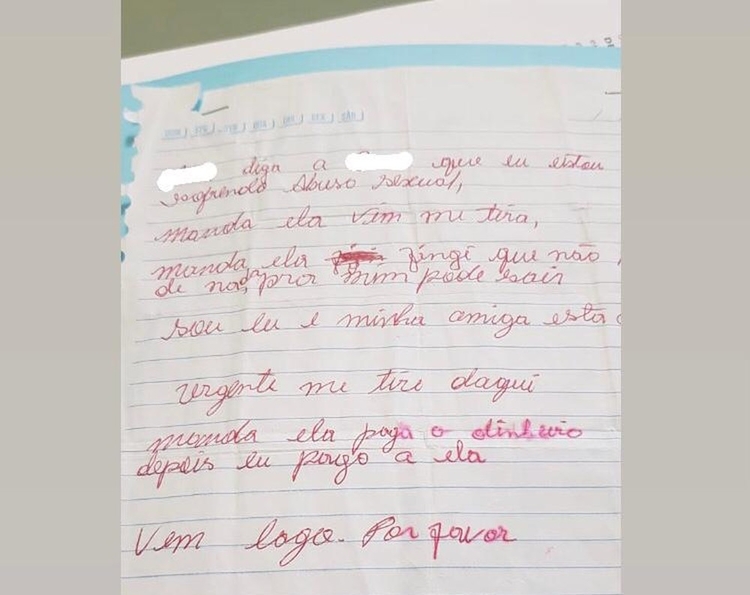 DOM SEG TER QUA QUI SEX SÁB
diga a que eu estou
sofrendo Abuso sexual,
manda ela vim me tira,
manda ela fingi que não
de nada, pra mim pode sair
sou eu e minha amiga está
urgente me tire daqui
manda ela paga o dinheiro
depois eu pago a ela
Vem logo. Por favor